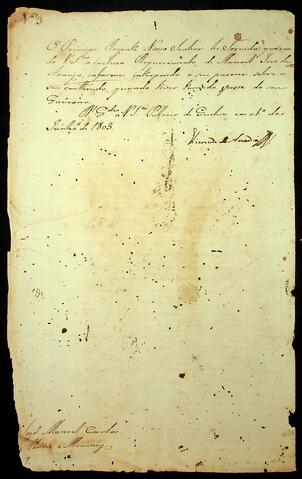 Nº 3
O Principe Regente Nosso Senhor he Servido, que
do V. Sª o incluso Requerimento de Manoel Jose de
Araujo, informe interpondo o seu parecer sobre o
seu contheudo, quando tiver tomado posse do seu
Governo.
Dº Gde a V. Sª Palacio de Queluz em 1º de
de 1803
Visconde de Anadia
Snr Manoel Carlos
de e Menezes